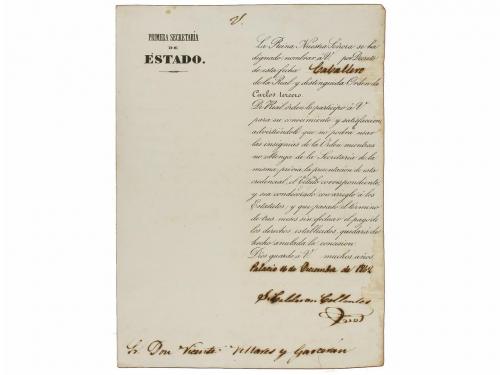 V.
PRIMERA SECRETARÍA
DE
ESTADO.
La Reina Nuestra Señora se ha
dignado nombrar á V. por Decreto
de esta fecha Caballero
de la Real y distinguida Orden de
Carlos tercero.
De Real orden lo participo á V.
para su conocimiento y satisfaccion,
advirtiéndole que no podrá usar
las insignias de la Orden mientras
no obtenga de la Secretaría de la
misma, prévia la presentacion de esta
credencial, el Título correspondiente,
y sea condecorado con arreglo á los
Estatutos; y que pasado el término
de tres meses sin efectuar el pago de
los derechos establecidos, quedará de
hecho anulada la concesion.
Dios guarde á V. muchos años.
Palacio de Diciembre de
S. Calderon Collantes
Sr. Don Vicente Villares y